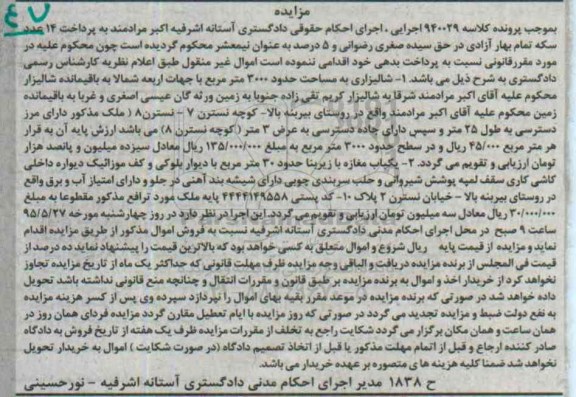 مزایده
۴۷
بموجب پرونده کلاسه ۹۴۰۰۲۹ اجرایی ، اجرای احکام حقوقی دادگستری آستانه اشرفیه اکبر مرادمند به پرداخت ۱۴ عدد
سکه تمام بهار آزادی در حق سیده صغری رضوانی و ۵ درصد به عنوان نیمعشر محکوم گردیده است چون محکوم علیه در
مورد مقرر قانونی نسبت به پرداخت بدهی خود اقدامی ننموده است اموال غیر منقول طبق اعلام نظریه کارشناس رسمی
دادگستری به شرح ذیل می باشد. ۱- شالیزاری به مساحت حدود ۳۰۰۰ متر مربع با جهات اربعه شمالا به باقیمانده شالیزار
محکوم علیه آقای اکبر مرادمند شرقا به شالیزار کریم تقی زاده جنوبا به زمین ورثه گان عیسی اصغری و غربا به باقیمانده
زمین محکوم علیه آقای اکبر مرادمند واقع در روستای بیرینه بالا- کوچه نسترن ۷ - نسترن ۸ ( ملک مذکور دارای مرز
دسترسی به طول ۲۵ متر و سپس دارای جاده دسترسی به عرض ۳ متر ( کوچه نسترن ۸) می باشد ارزش پایه آن به قرار
هر متر مربع ۴۵/۰۰۰ ریال و در سطح حدود ۳۰۰۰ متر مربع به مبلغ ۱۳۵/۰۰۰/۰۰۰ ریال معادل سیزده میلیون و پانصد هزار
تومان ارزیابی و تقویم می گردد. ۲- یکباب مغازه با زیربنا حدود ۳۰ متر مربع با دیوار بلوکی و کف موزائیک دیواره داخلی
کاشی کاری سقف لمبه پوشش شیروانی و حلب سربندی چوبی دارای شیشه بند آهنی در جلو و دارای امتیاز آب و برق واقع
در روستای بیرینه بالا - خیابان نسترن ۲ پلاک ۱۰- کد پستی ۴۴۴۴۱۴۹۵۵۸ پایه ملک مورد ترافع مذکور مقطوعا به مبلغ
۳۰/۰۰۰/۰۰۰ ریال معادل سه میلیون تومان ارزیابی و تقویم می گردد. این اجرا در نظر دارد در روز چهارشنبه مورخه ۹۵/۵/۲۷
ساعت ۹ صبح در محل اجرای احکام مدنی دادگستری آستانه اشرفیه نسبت به فروش اموال مذکور از طریق مزایده اقدام
نماید و مزایده از قیمت پایه ریال شروع و اموال متعلق به کسی خواهد بود که بالاترین قیمت را پیشنهاد نماید ده درصد از
قیمت فی المجلس از برنده مزایده دریافت و الباقی وجه مزایده ظرف مهلت قانونی که حداکثر یک ماه از تاریخ مزایده تجاوز
نخواهد کرد از خریدار اخذ و اموال به برنده مزایده بر طبق قانون و مقررات انتقال و چنانچه منع قانونی نداشته باشد تحویل
داده خواهد شد در صورتی که برنده مزایده در موعد مقرر بقیه بهای اموال را نپردازد سپرده وی پس از کسر هزینه مزایده
به نفع دولت ضبط و مزایده تجدید می گردد در صورتی که روز مزایده با ایام تعطیل مقارن گردد مزایده فردای همان روز در
همان ساعت و همان مکان برگزار می گردد شکایت راجع به تخلف از مقررات مزایده ظرف یک هفته از تاریخ فروش به دادگاه
صادر کننده ارجاع و قبل از اتمام مهلت مذکور یا قبل از اتخاذ تصمیم دادگاه (در صورت شکایت ) اموال به خریدار تحویل
نخواهد شد ضمنا کلیه هزینه های متصوره بر عهده خریدار می باشد.
ح ۱۸۳۸ مدیر اجرای احکام مدنی دادگستری آستانه اشرفیه - نورحسینی